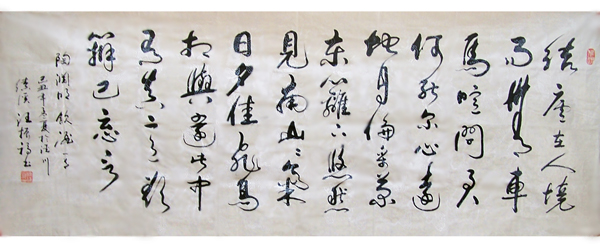 結廬在人境
而無車
馬喧問君
何能尔心遠
地自偏采菊
东籬下悠然
見南山山氣
日夕佳飛鳥
相與還此中
有真意欲
辯已忘言
陶渊明饮酒